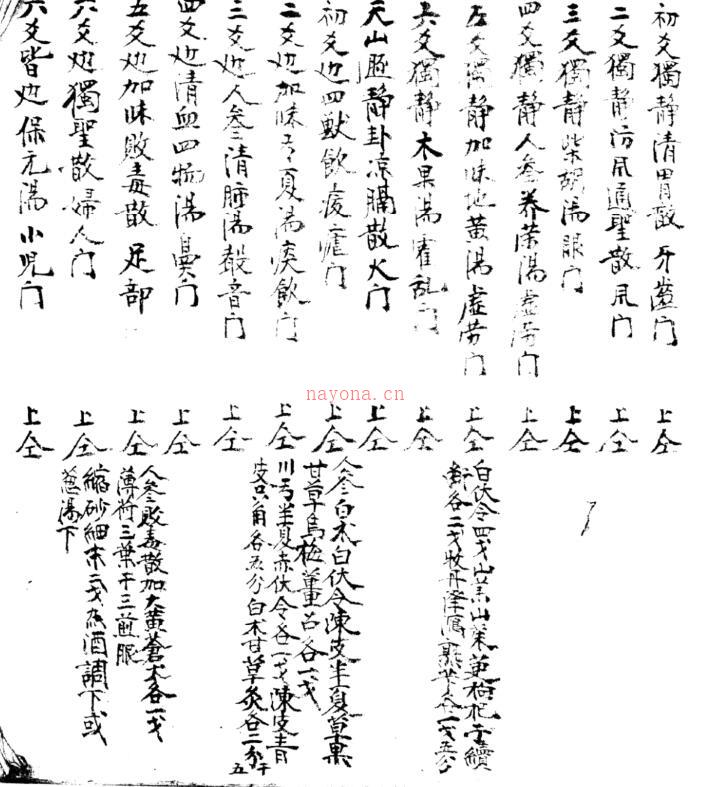 初爻獨静清胃散牙齒门 上仝
二爻獨静防风通聖散风门 上仝
三爻獨静柴胡湯眼门 上仝
四爻獨静人參养荣湯虚劳门 上仝
五爻獨静加味地黄湯虚劳门 上仝
白伏令四戈山茱山藥茰枸杞子續
各二戈牧丹澤瀉 各一戈五分
六爻獨静木果湯霍乱门 上仝
天山遯静卦凉膈散火门 上仝
初爻动四獸飲痎瘧门 上仝
人參白朮白伏令陳皮半夏草果
甘草烏梅薑召各一戈
二爻动加味芎夏湯痰飲门 上仝
川芎半夏赤伏令各一戈陳皮青
皮只角各五分白朮甘草炙各二分
干五
三爻动人參清肺湯聲音门 上仝
四爻动清血四物湯鼻门 上仝
五爻动加味敗毒散足部 上仝
人參敗毒散加大黄蒼朮各一戈
薄荷三葉干三煎服
六爻动獨聖散婦人门 上仝
縮砂細末二戈热酒調下或
葱湯下
六爻皆动保元湯小児门 上仝
nayona.cn